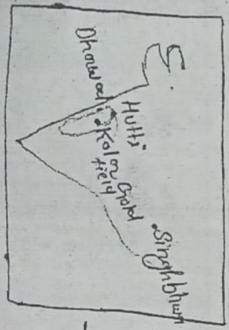 Dharwad
Hutti
Kolar Gold
field
Singhbhum